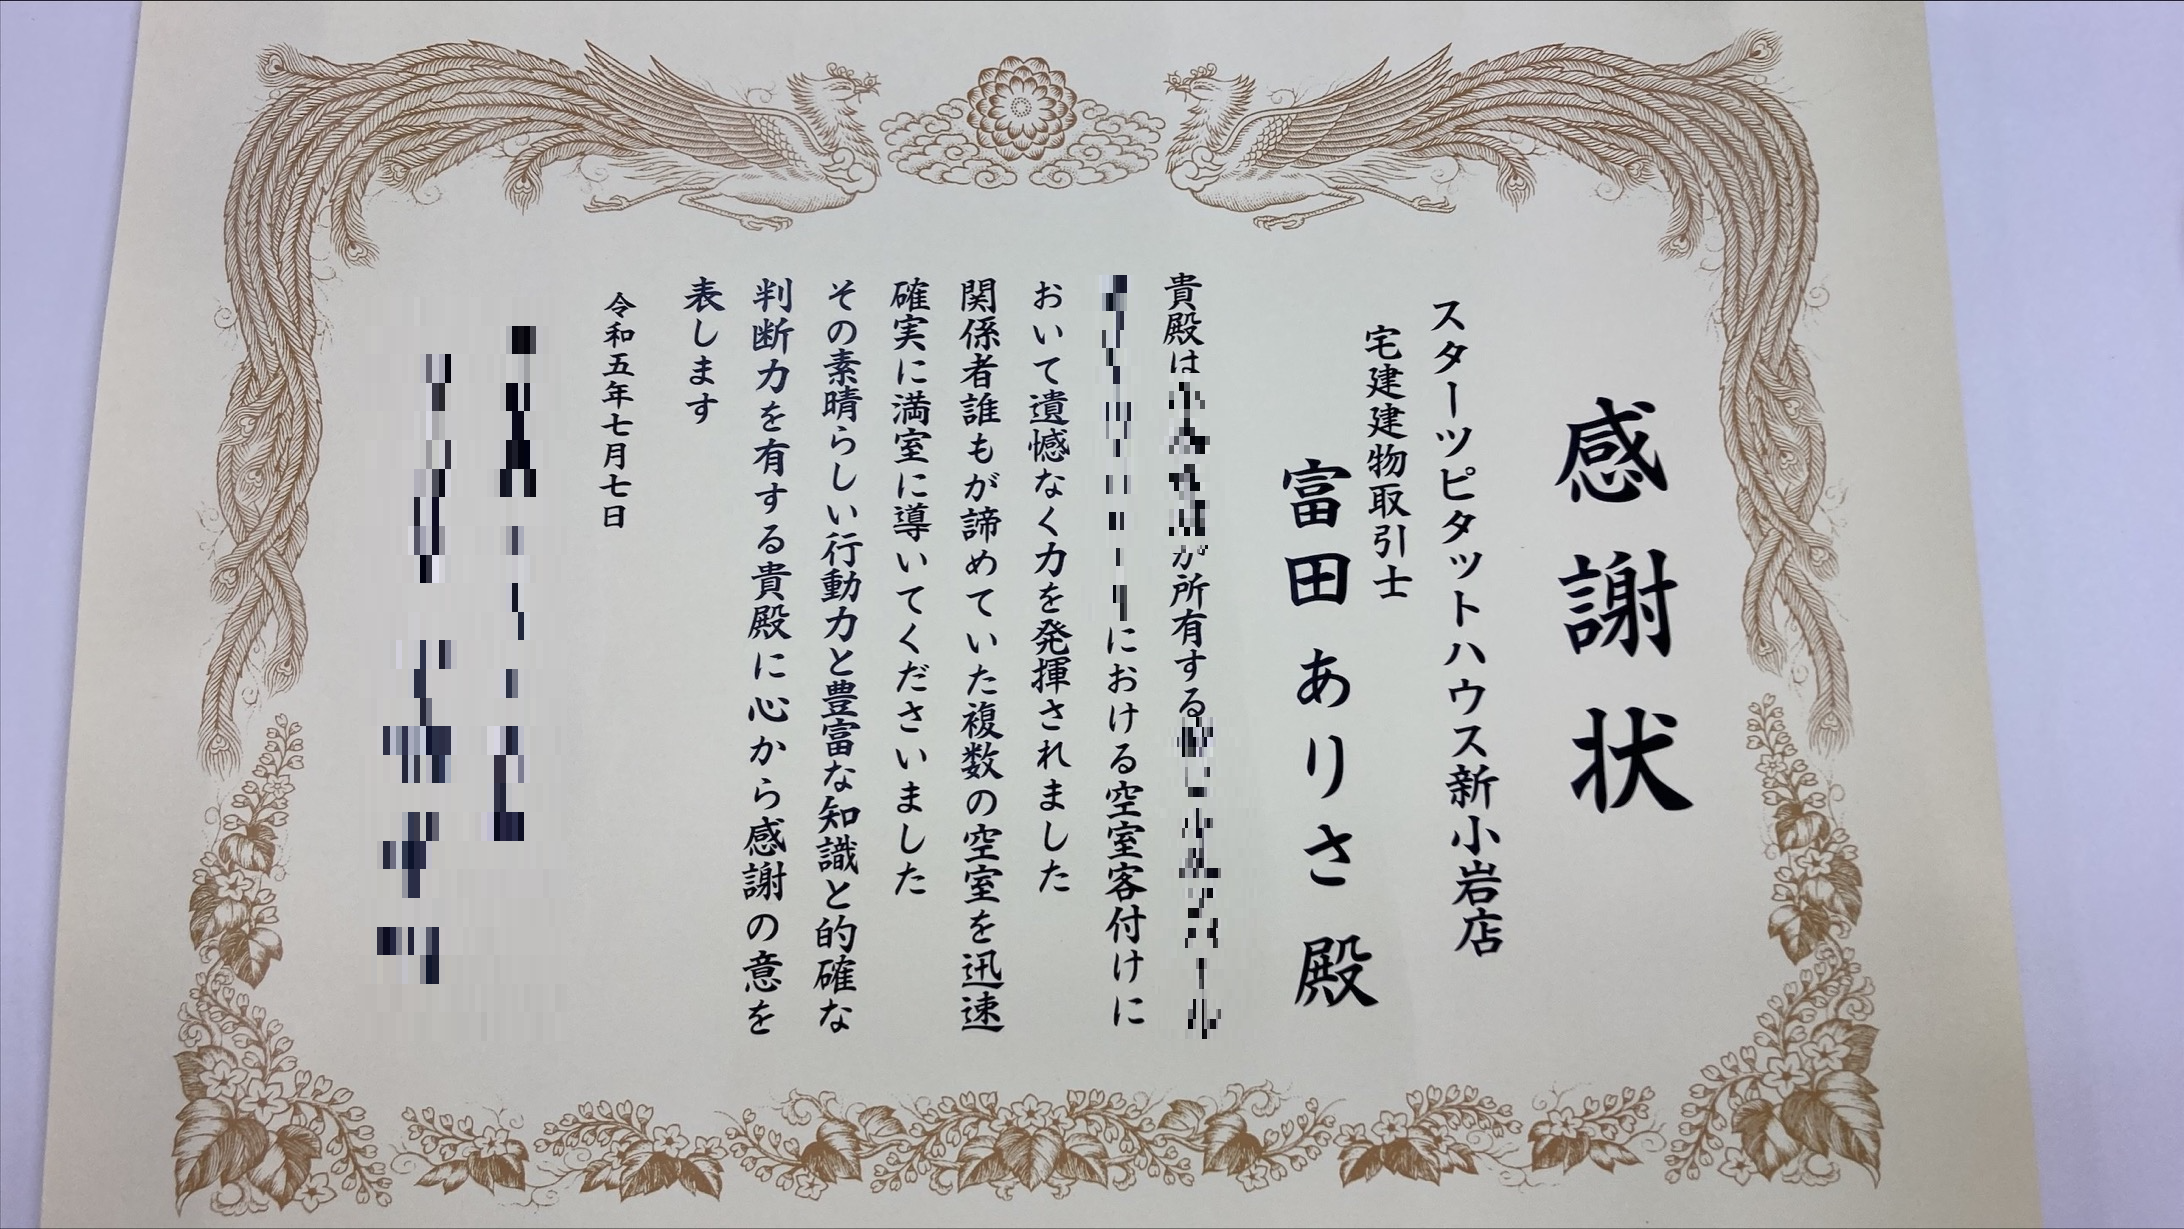 感謝状
スターツピタットハウス新小岩店
宅建建物取引士
富田ありさ殿
貴殿は
が所有する
における空室客付けに
おいて遺憾なく力を発揮されました
関係者誰もが諦めていた複数の空室を迅速
確実に満室に導いてくださいました
その素晴らしい行動力と豊富な知識と的確な
判断力を有する貴殿に心から感謝の意を
表します
令和五年七月七日